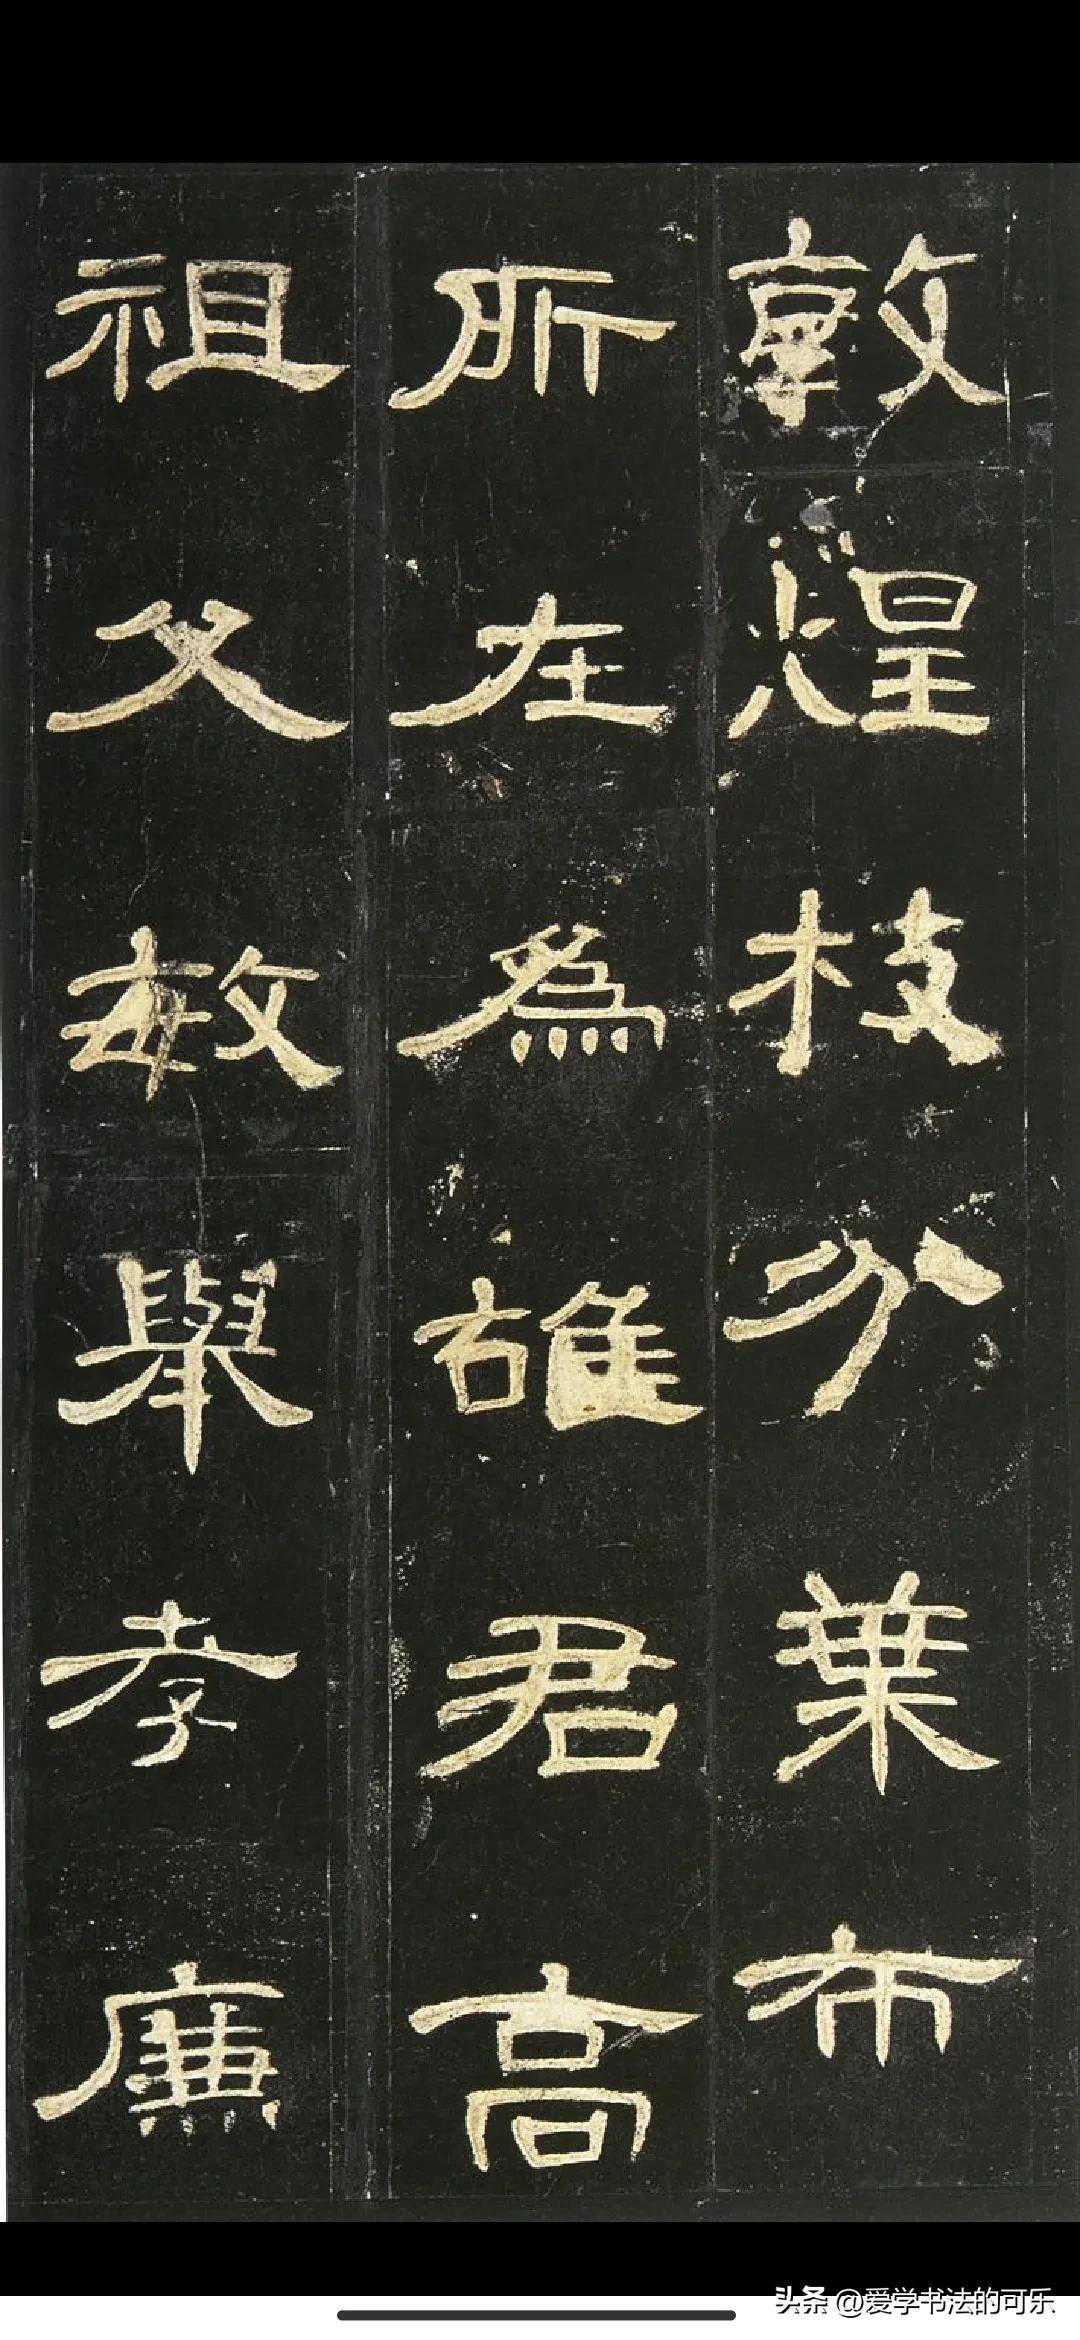 敦煌枝分葉布
所在為雄君高
祖父敏舉孝廉
头条 @爱学书法的可乐